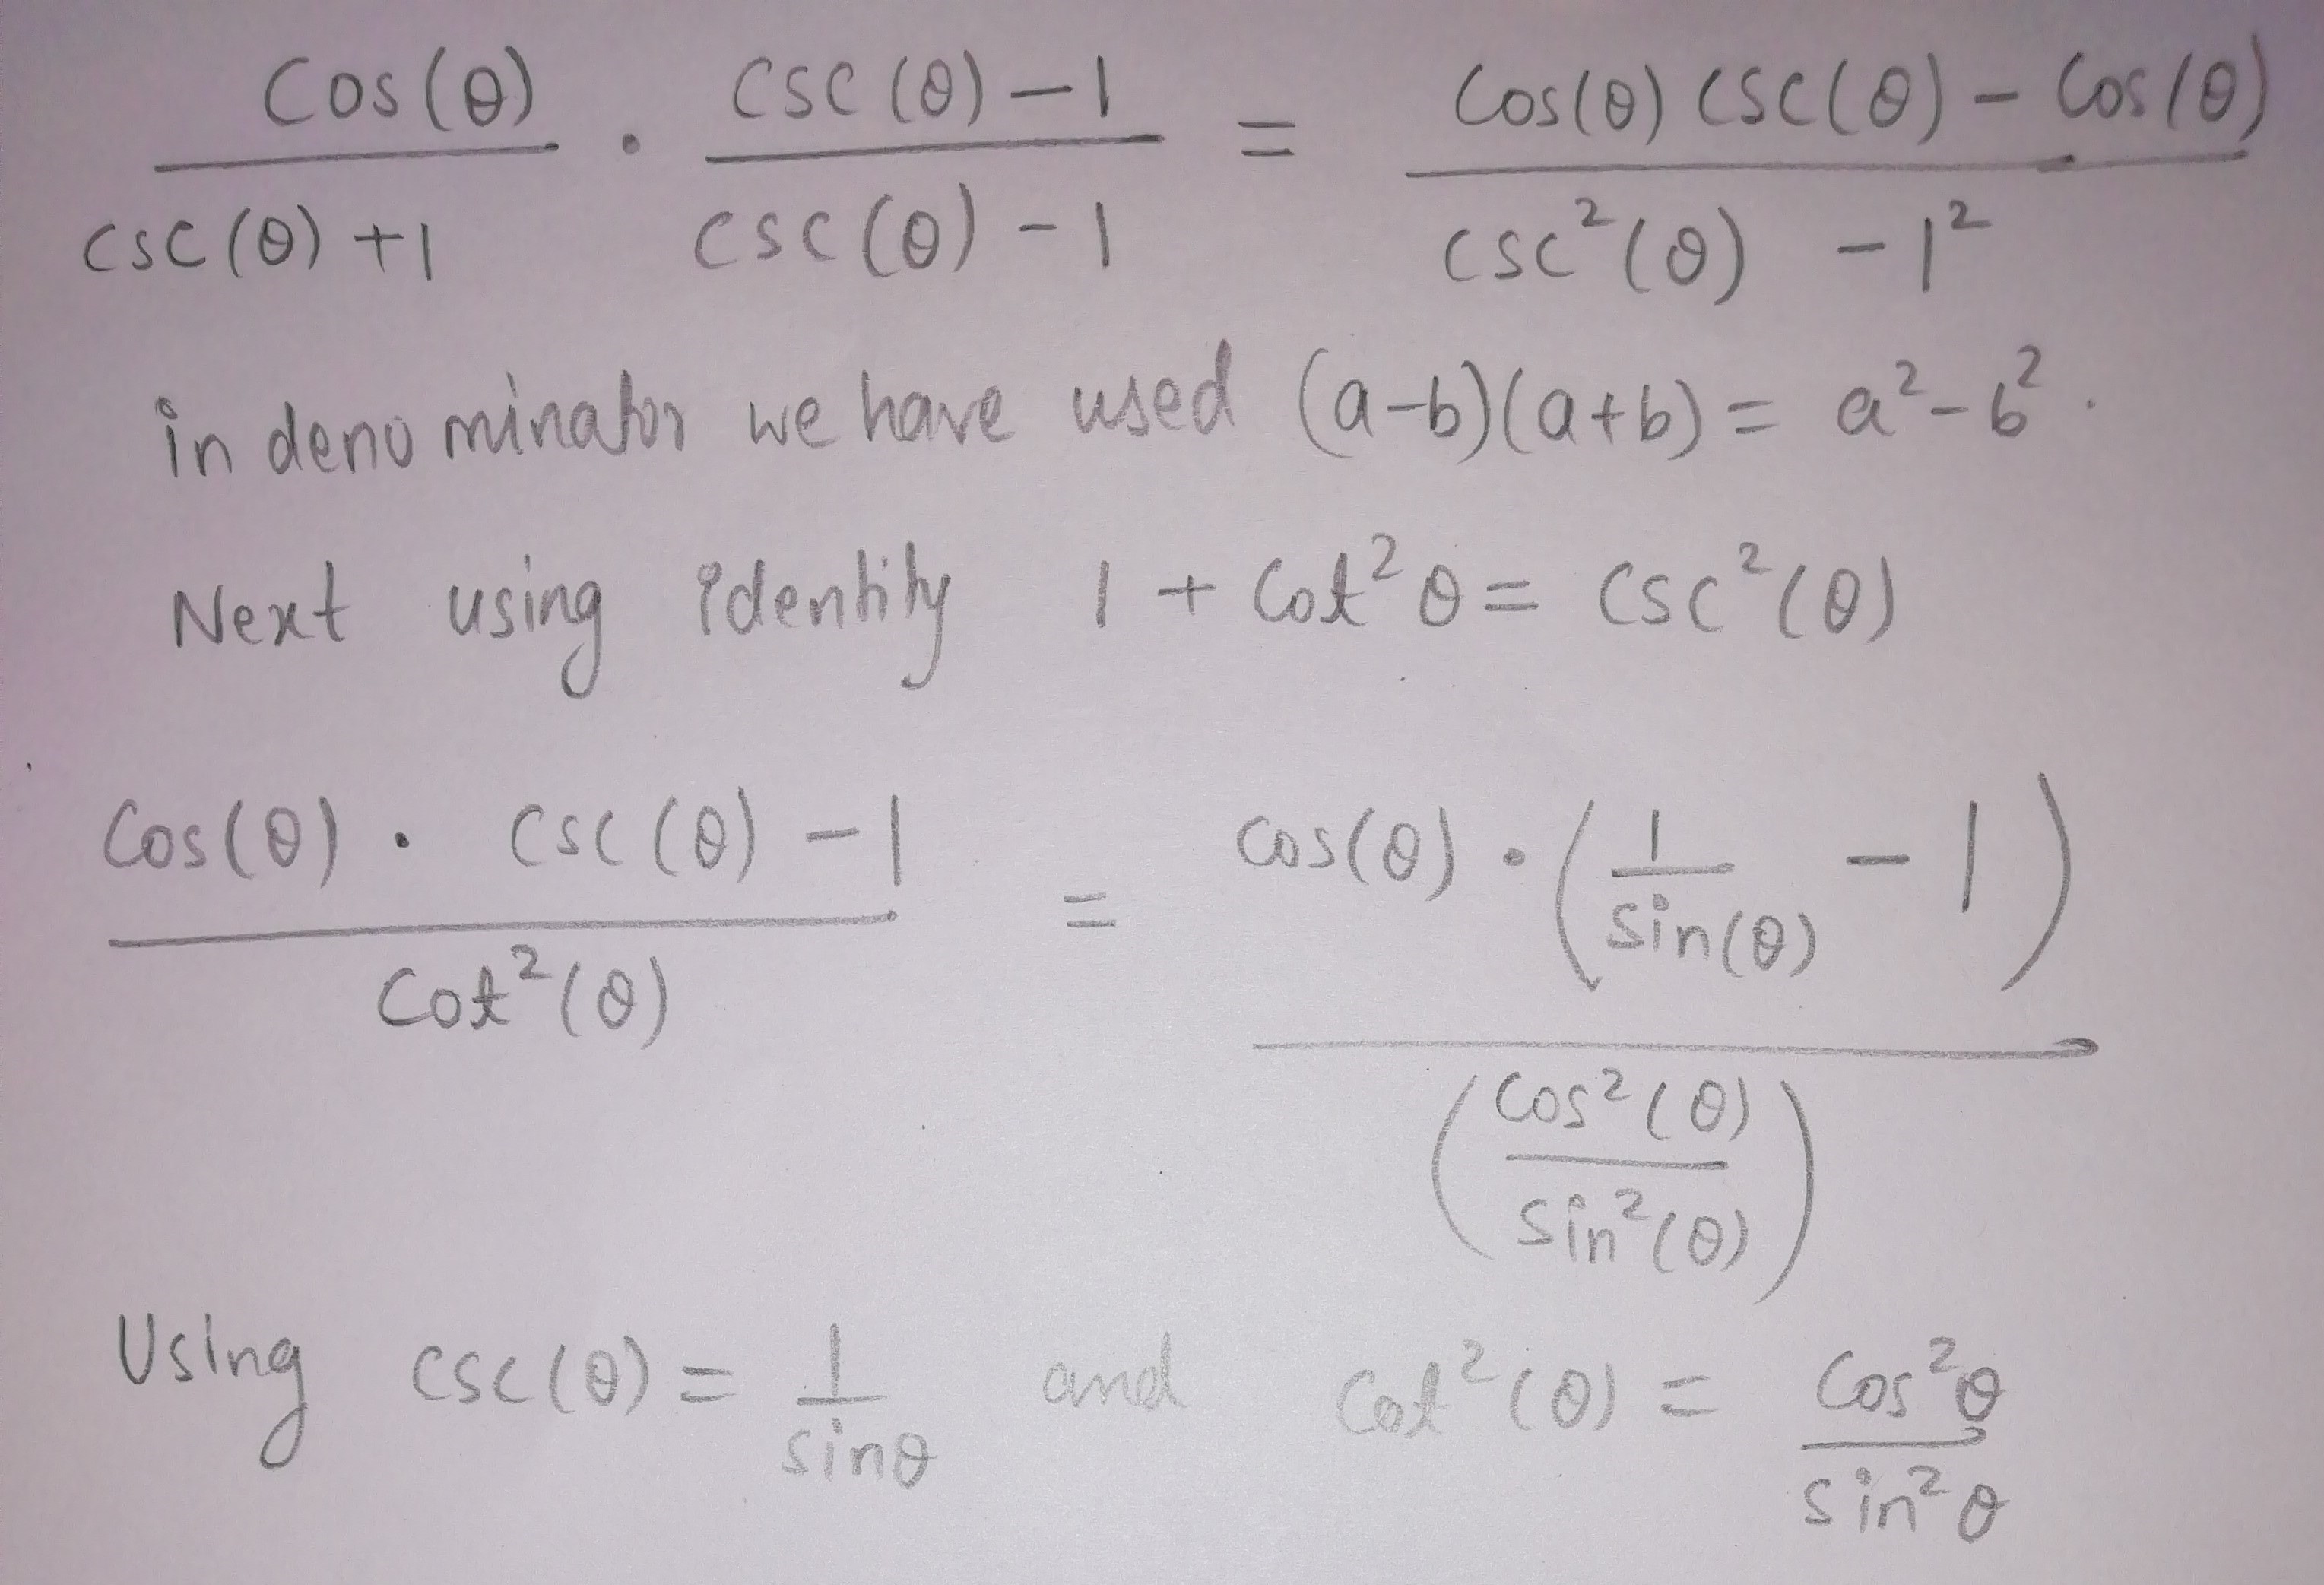 Cos(θ) / csc(θ)+1 · csc(θ)-1 / csc(θ)-1 = Cos(θ) csc(θ) - Cos(θ) / csc²(θ) - 1²
in denominator we have used (a-b)(a+b) = a²-b².
Next using identity 1 + Cot²θ = csc²(θ)
Cos(θ) · csc(θ) - 1 / Cot²(θ) = cos(θ) · (1 / sin(θ) - 1) / (Cos²(θ) / Sin²(θ))
Using csc(θ) = 1 / sinθ and Cot²(θ) = Cos²θ / sin²θ